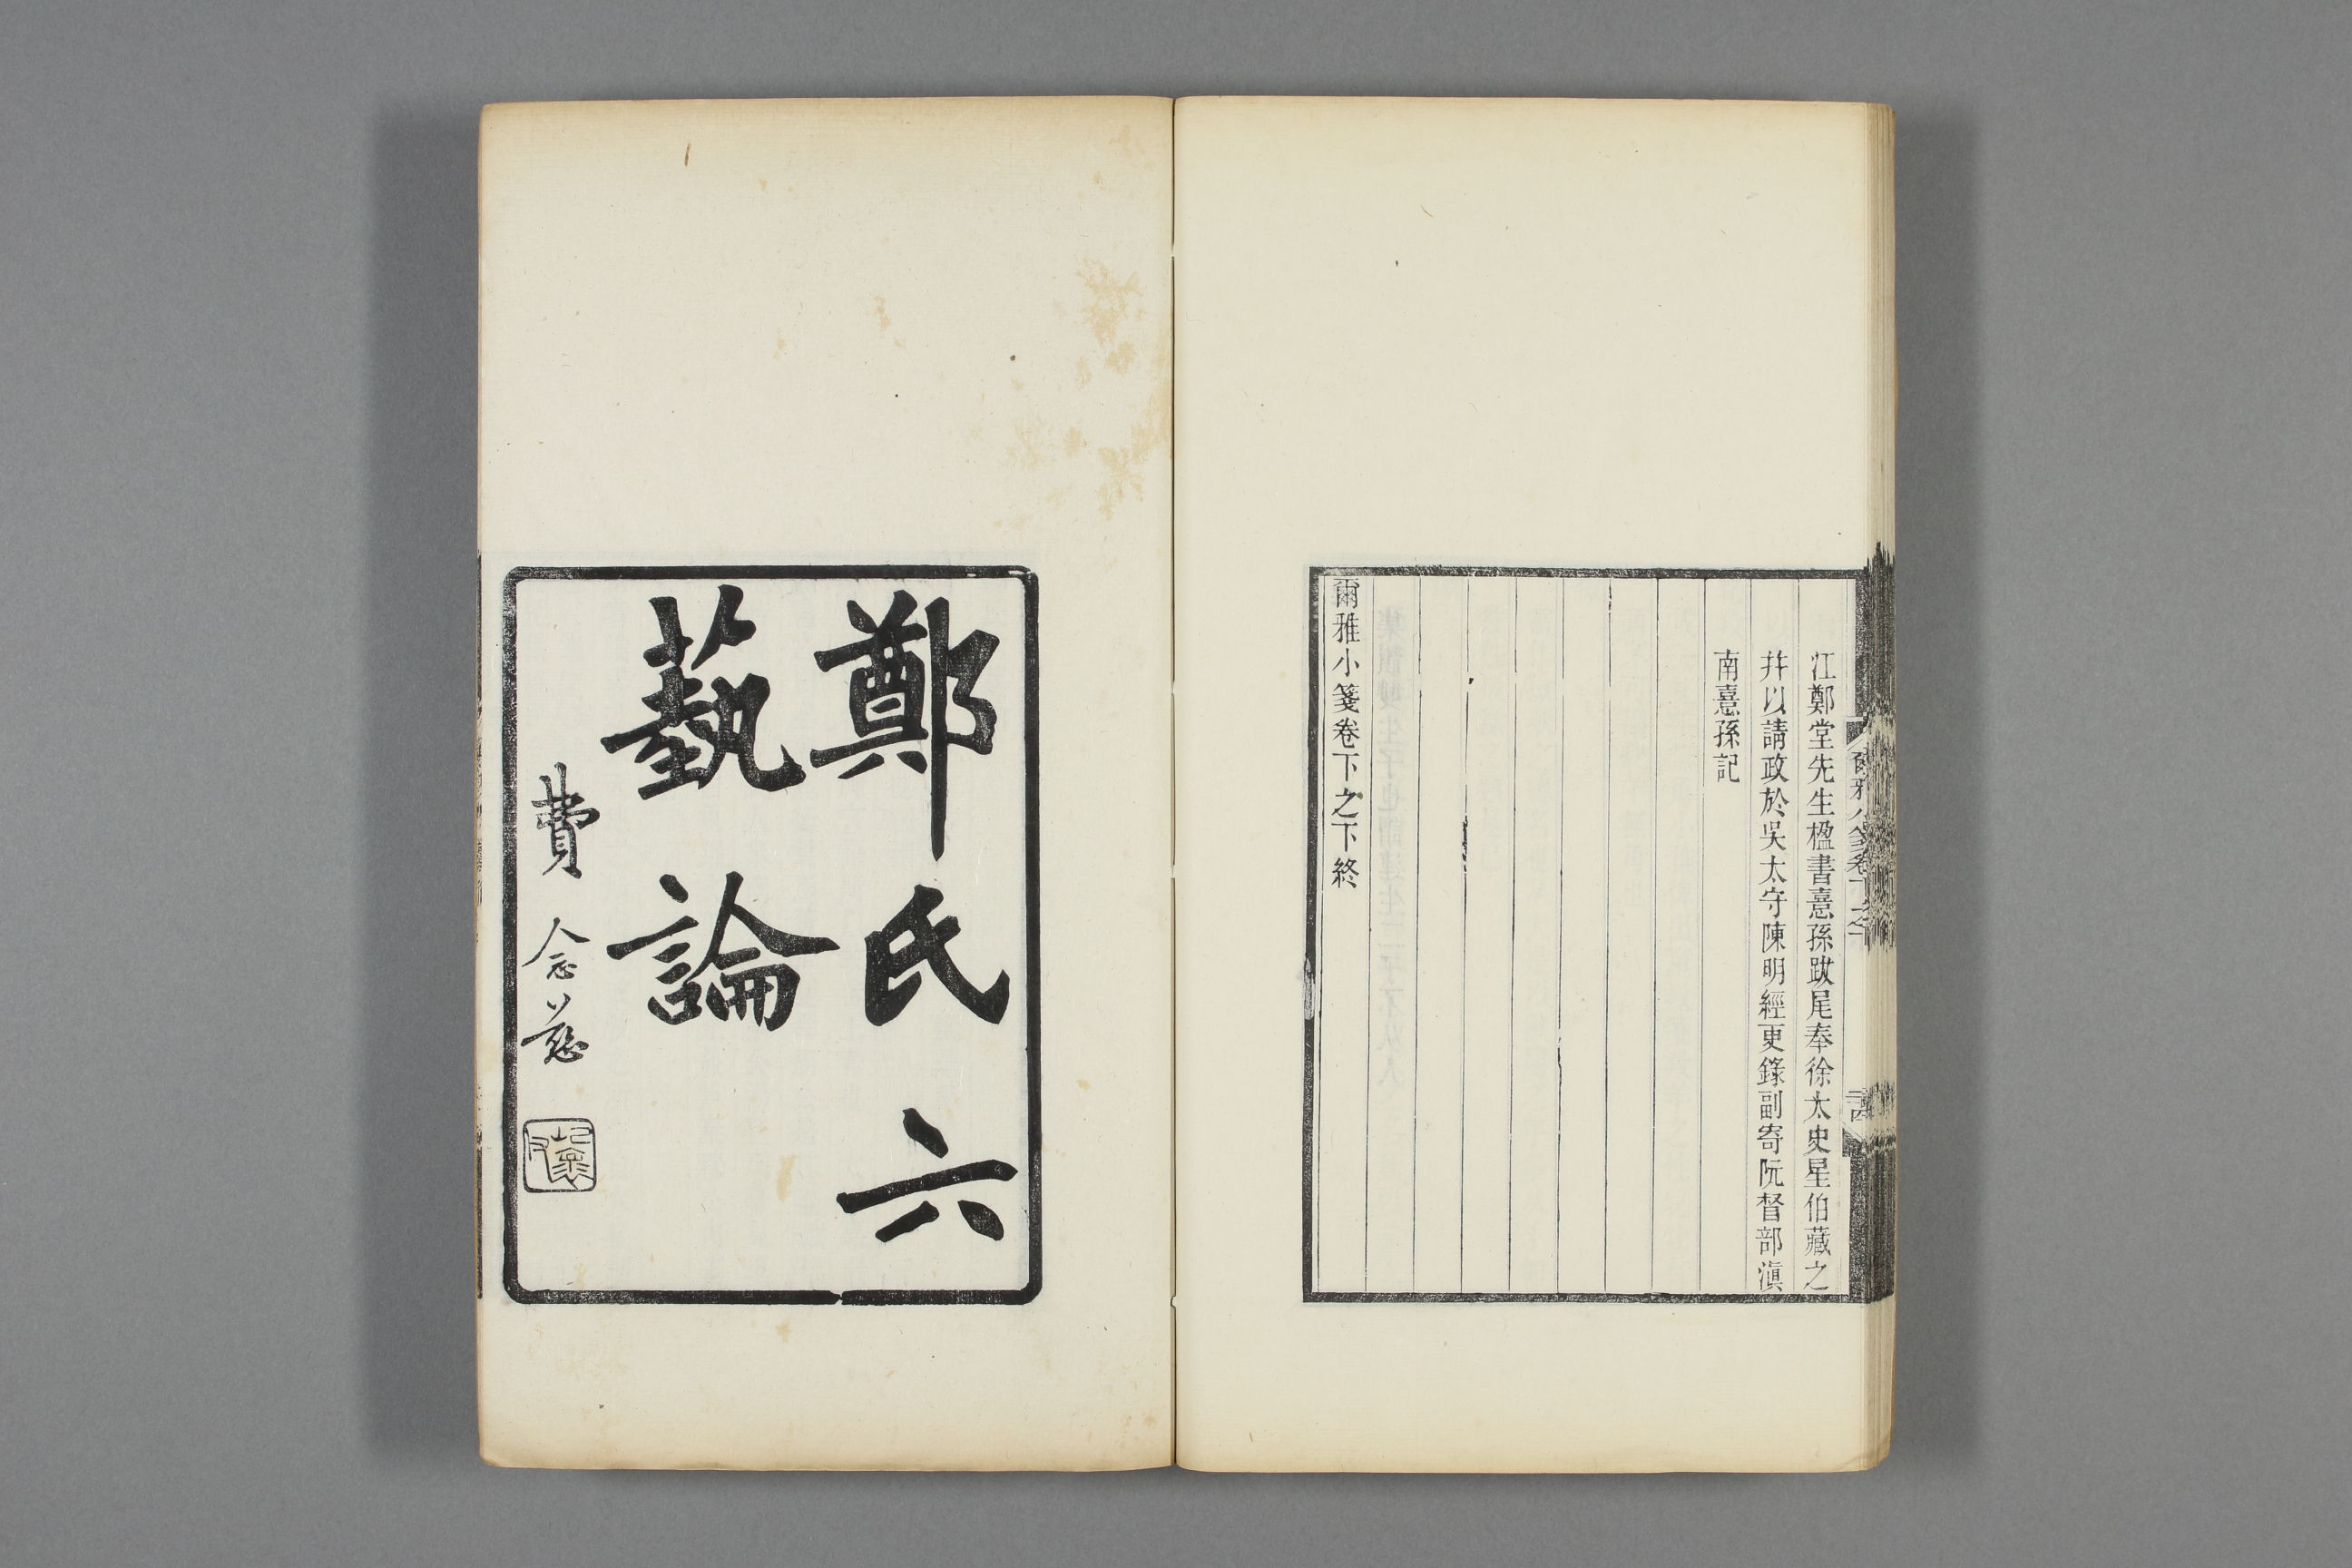 江鄭堂先生楹書憙孫跋尾奉徐太史星伯藏之
幷以請政於吳太守陳明經更錄副寄阮督部滇
南憙孫記
爾雅小箋卷下之下終
鄭氏六
藝論
費念慈